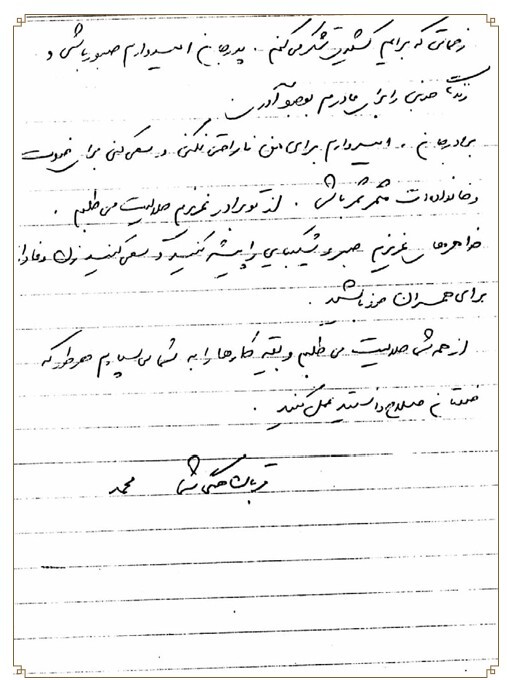 زحماتی که برایم کشیدی تشکر می‌کنم . پدرجان امیدوارم صبور باشی و
زندگی خوبی را برای مادرم بوجود آوری .
برادرجان ، امیدوارم برای من ناراحتی نکنی و سعی کنی برای خودت
و خانواده‌ات مثمر ثمر باشی . از تو برادر عزیزم حلالیت می‌طلبم .
خواهرهای عزیزم صبر و شکیبایی را پیشه کنید و سعی کنید زن وفادار
برای همسران خود باشید .
از همه‌تان حلالیت می طلبم و بقیه کارها را به شما می‌سپارم هر طور که
خودتان صلاح دانستید عمل کنید .
قربان همگی شما محمد